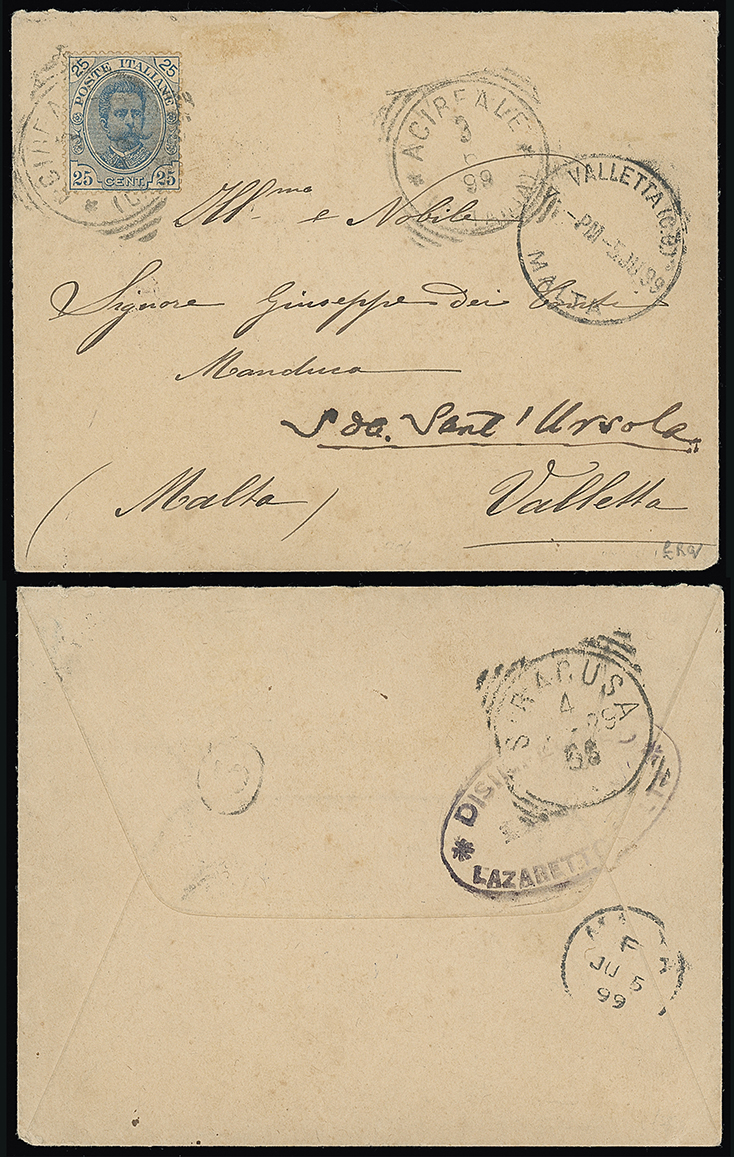 25 POSTE ITALIANE 25
25 CENT. 25
ACIREALE
3
6
99
(CATANIA)
VALLETTA (G.B)
PM-5 JU 99
MALTA
Ill.mo e Nobile
Signore Giuseppe dei Conti
Manduca
Sda. Sant' Ursola
(Malta) Valletta
SIRACUSA
4
99
LAZARETTO
MALTA
F
JU 5
99